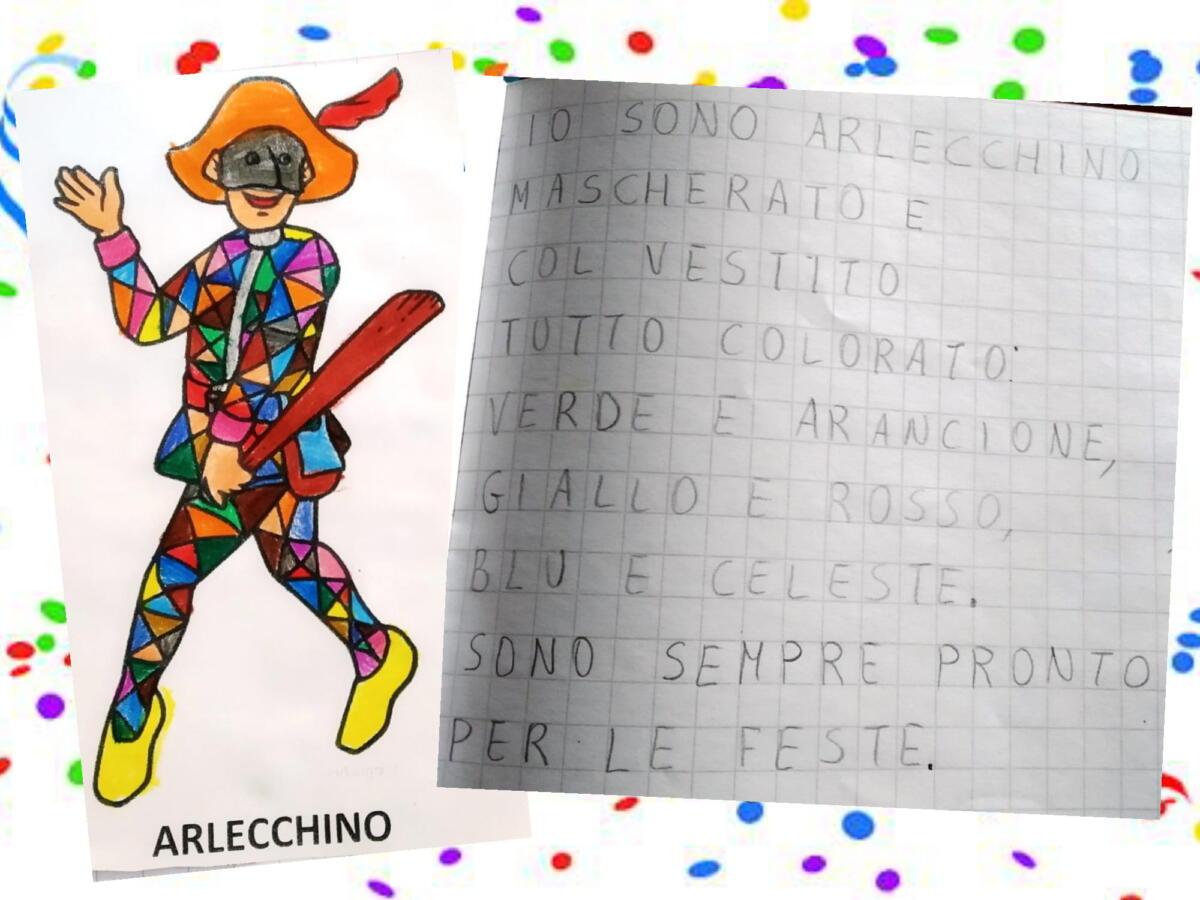 IO SONO ARLECCHINO
MASCHERATO E
COL VESTITO
TUTTO COLORATO:
VERDE E ARANCIONE,
GIALLO E ROSSO,
BLU E CELESTE.
SONO SEMPRE PRONTO
PER LE FESTE.
ARLECCHINO